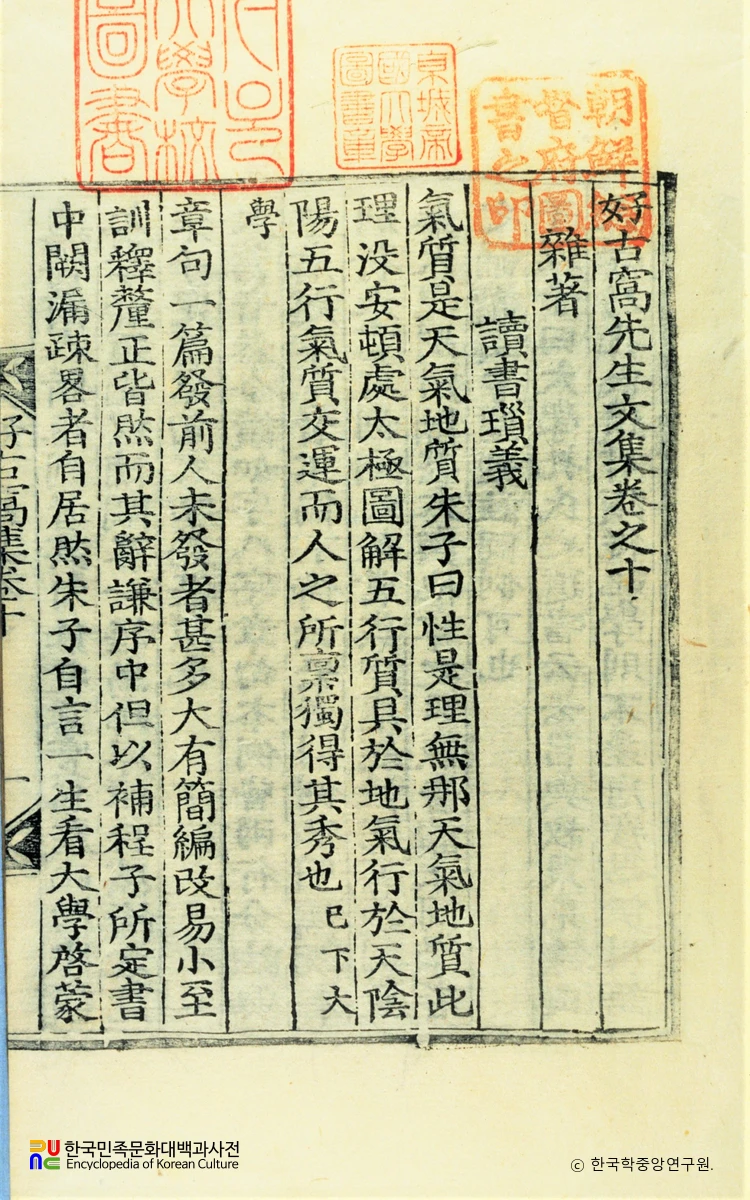 好古窩先生文集卷之十
雜著
讀書瑣義
氣質是天氣地質朱子曰性是理無那天氣地質此
理没安頓處太極圖解五行質具於地氣行於天陰
陽五行氣質交運而人之所禀獨得其秀也 已下大
學
章句一篇發前人未發者甚多大有簡編改易小至
訓釋釐正皆然而其辭謙序中但以補程子所定書
中闕漏踈畧者自居然朱子自言一生看大學啓蒙
好古窩集卷十
一
朝鮮總督府圖書之印
京城帝國大學圖書章
大學校圖書
한국민족문화대백과사전
Encyclopedia of Korean Culture
ⓒ 한국학중앙연구원.